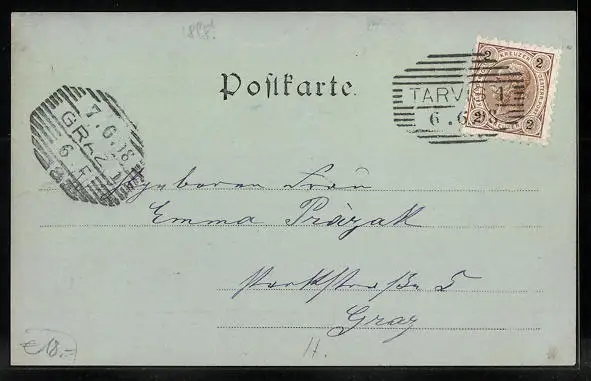 Postkarte.
2 KREUZER 2
2 2
TARVIS 1
6.6.98
7.6.98
GRAZ 1
6.F
geboren Frau
Emma Pràzak
Parkstraße 5
Graz
H.
€18.-